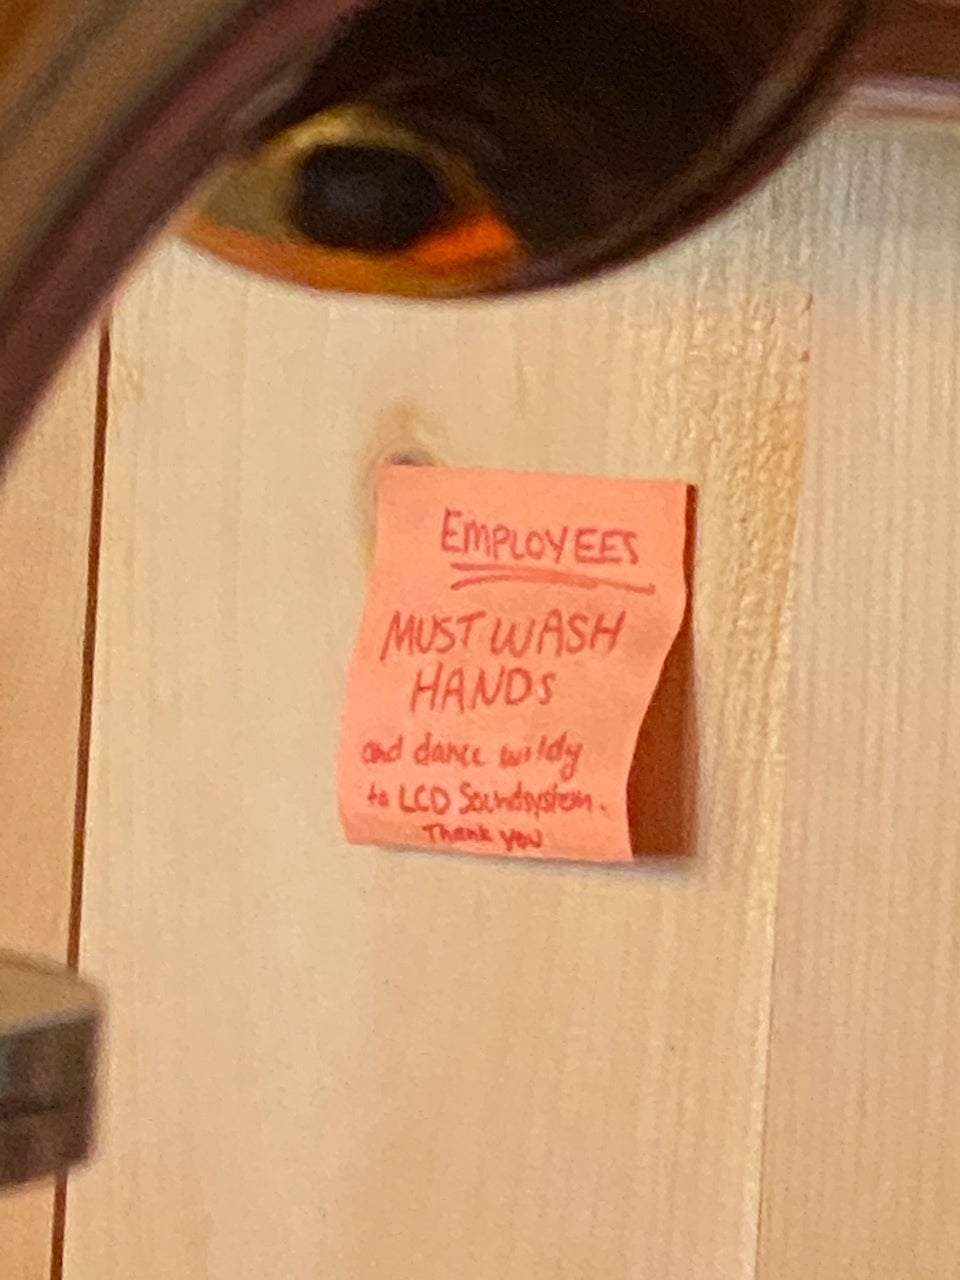 EMPLOYEES
MUST WASH
HANDS
and dance wildy
to LCD Soundsystem.
Thank you